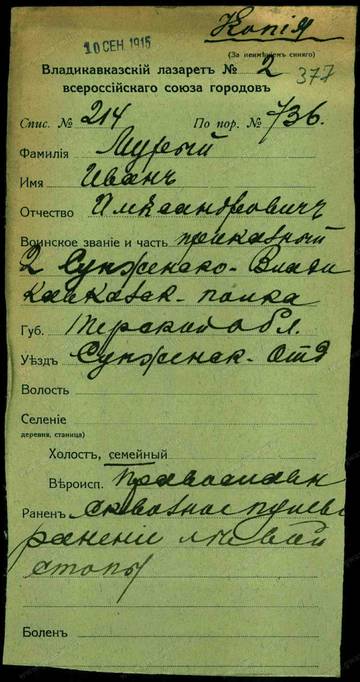 Копія
10 СЕН 1915
(За неимѣніемъ синяго)
Владикавказскій лазаретъ № 2
377
всероссійскаго союза городовъ
Спис. № 214 По пор. № 736.
Фамилія Мурый
Имя Иванъ
Отчество Александровичъ
Воинское званіе и часть приказный
2 Сунженско-Влади
кавказск. полка
Губ. Терской обл.
Уѣздъ Сунженск. Отд
Волость
Селеніе
деревня, станица)
Холостъ, семейный
Вѣроисп. Православн
Раненъ сквозное пулев
раненіе лѣвой
стопы
Боленъ